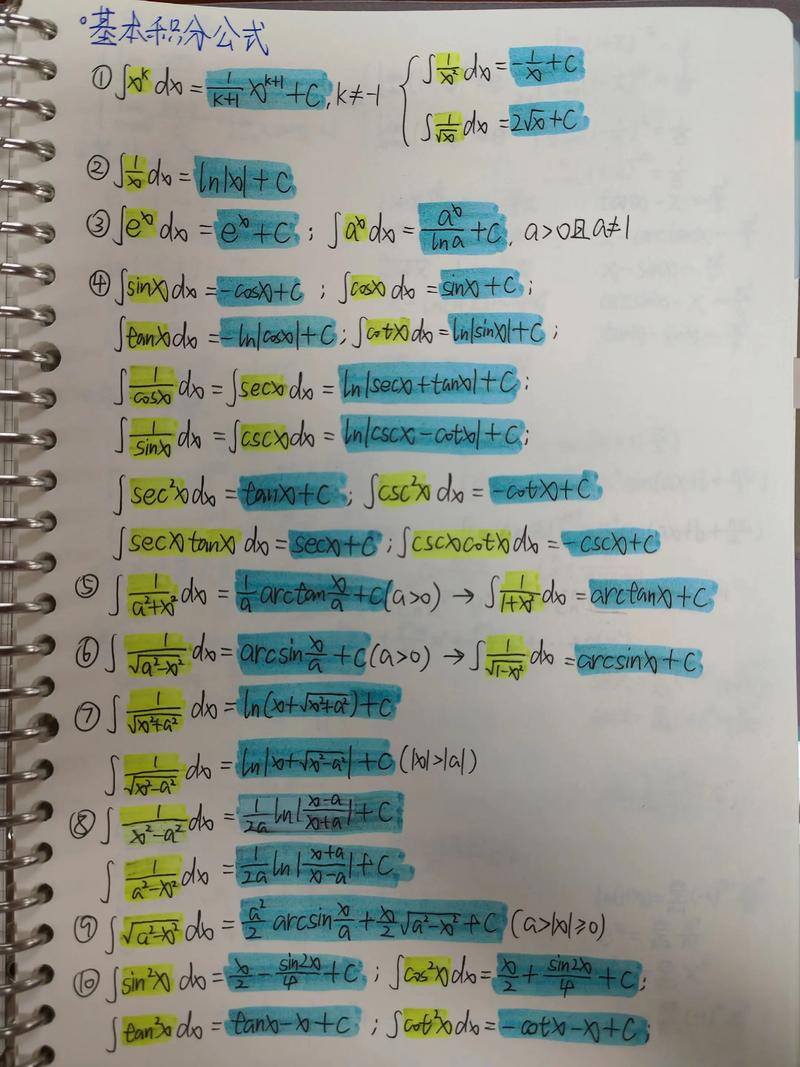 °基本积分公式
① ∫x^k dx = 1/(k+1) x^(k+1) + C, k≠-1 { ∫1/x² dx = -1/x + C
∫1/√x dx = 2√x + C
② ∫1/x dx = ln|x| + C
③ ∫e^x dx = e^x + C ; ∫a^x dx = a^x/lna + C, a>0且a≠1
④ ∫sinx dx = -cosx + C ; ∫cosx dx = sinx + C ;
∫tanx dx = -ln|cosx| + C ; ∫cotx dx = ln|sinx| + C ;
∫1/cosx dx = ∫secx dx = ln|secx+tanx| + C ;
∫1/sinx dx = ∫cscx dx = ln|cscx-cotx| + C ;
∫sec²x dx = tanx + C ; ∫csc²x dx = -cotx + C
∫secx tanx dx = secx + C ; ∫cscxcotx dx = -cscx + C
⑤ ∫1/(a²+x²) dx = 1/a arctan x/a + C (a>0) → ∫1/(1+x²) dx = arctanx + C
⑥ ∫1/√(a²-x²) dx = arcsin x/a + C (a>0) → ∫1/√(1-x²) dx = arcsinx + C
⑦ ∫1/√(x²+a²) dx = ln(x+√(x²+a²)) + C
∫1/√(x²-a²) dx = ln|x+√(x²-a²)| + C (|x|>|a|)
⑧ ∫1/(x²-a²) dx = 1/2a ln|(x-a)/(x+a)| + C
∫1/(a²-x²) dx = 1/2a ln|(x+a)/(x-a)| + C
⑨ ∫√(a²-x²) dx = a²/2 arcsin x/a + x/2 √(a²-x²) + C (a>|x|≥0)
⑩ ∫sin²x dx = x/2 - sin2x/4 + C ; ∫cos²x dx = x/2 + sin2x/4 + C ;
∫tan²x dx = tanx - x + C ; ∫cot²x dx = -cotx - x + C ;